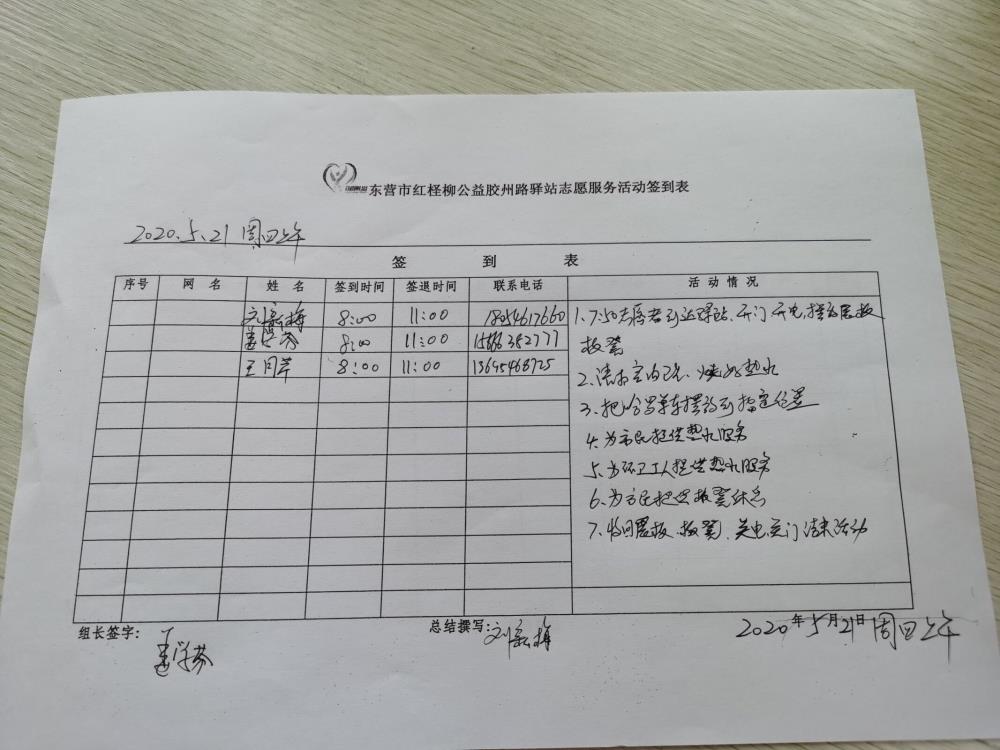 东营市红柽柳公益胶州路驿站志愿服务活动签到表
2020.5.21 周四上午
签 到 表
序号 网 名 姓 名 签到时间 签退时间 联系电话 活 动 情 况
刘新梅 8:00 11:00 18954617660
8:00 11:00 15666382777
王同苹 8:00 11:00 13645468725
1、7:50志愿者到达驿站、开门开电,摆放展板
板凳
2、清扫室内卫生、烧好热水
3、把哈罗单车摆放到指定位置
4、为市民提供热水服务
5、为环卫工人提供热水服务
6、为市民提供板凳休息
7、收回展板、板凳、关电关门结束活动
组长签字:
总结撰写: 刘新梅
2020年5月21日周四上午